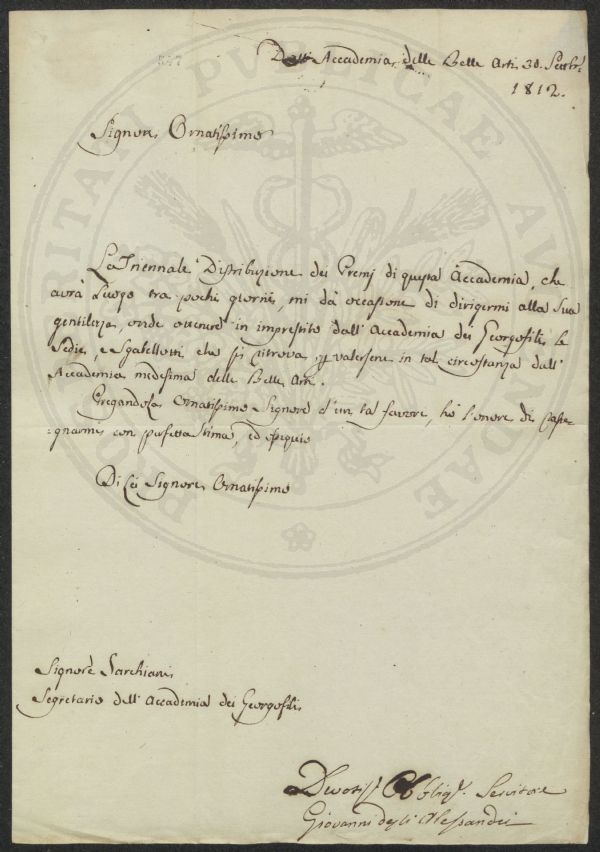 547
Dall'Accademia delle Belle Arti 30. Settbre
1812.
Signore Ornatissimo
La Triennale Distribuzione dei Premj di questa Accademia, che
avrà Luogo tra pochi giorni, mi dà occasione di dirigermi alla Sua
gentilezza, onde ottenere in imprestito dall'Accademia dei Georgofili le
Sedie, e Sgabellotti che si ritrova per valersene in tal circostanza dall'
Accademia medesima delle Belle Arti.
Pregandola Ornatissimo Signore d'un tal favore, hò l'onore di rasse-
=gnarmi con perfetta stima, ed ossequio
Di Lei Signore Ornatissimo
Signore Sarchiani
Segretario dell'Accademia dei Georgofili
Devotiss. Obbligt. Servitore
Giovanni degli Alessandri
PROSPERITATI PUBLICAE AUGENDAE